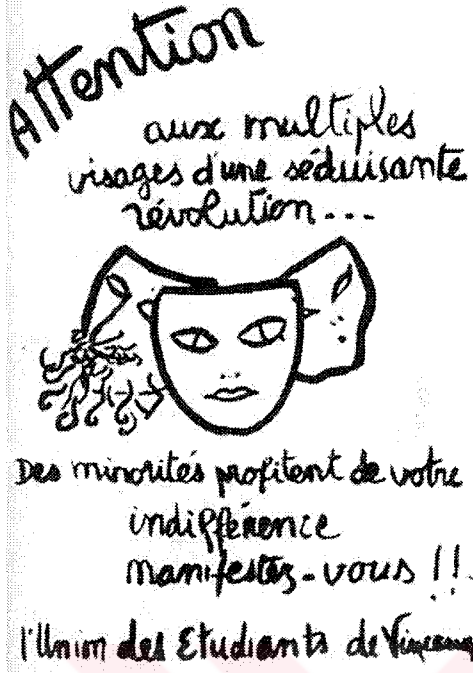 Attention
aux multiples
visages d'une séduisante
révolution...
Des minorités profitent de votre
indifférence
manifestez-vous !!
l'Union des Etudiants de Vincennes